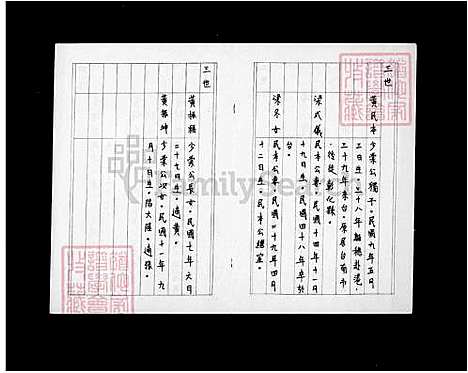 三世
黃民本 少霖公獨子。民國九年五月
三日生。三十八年離穗赴港。
三十九年來台。原居台南市
。後徙彰化縣。
梁式儀 民本公妻。民國十四年十一月
十九日生。民國四十八年卒於
台。
梁冬女 民本公妻。民國二十九年四月
十二日生。民本公繼室。
三世
黃振穗 少霖公長女。民國七年六月
二十七日生。適黃。
黃振坤 少霖公次女。民國十一年九
月十日生。陷大陸。適張。
FamilySearch